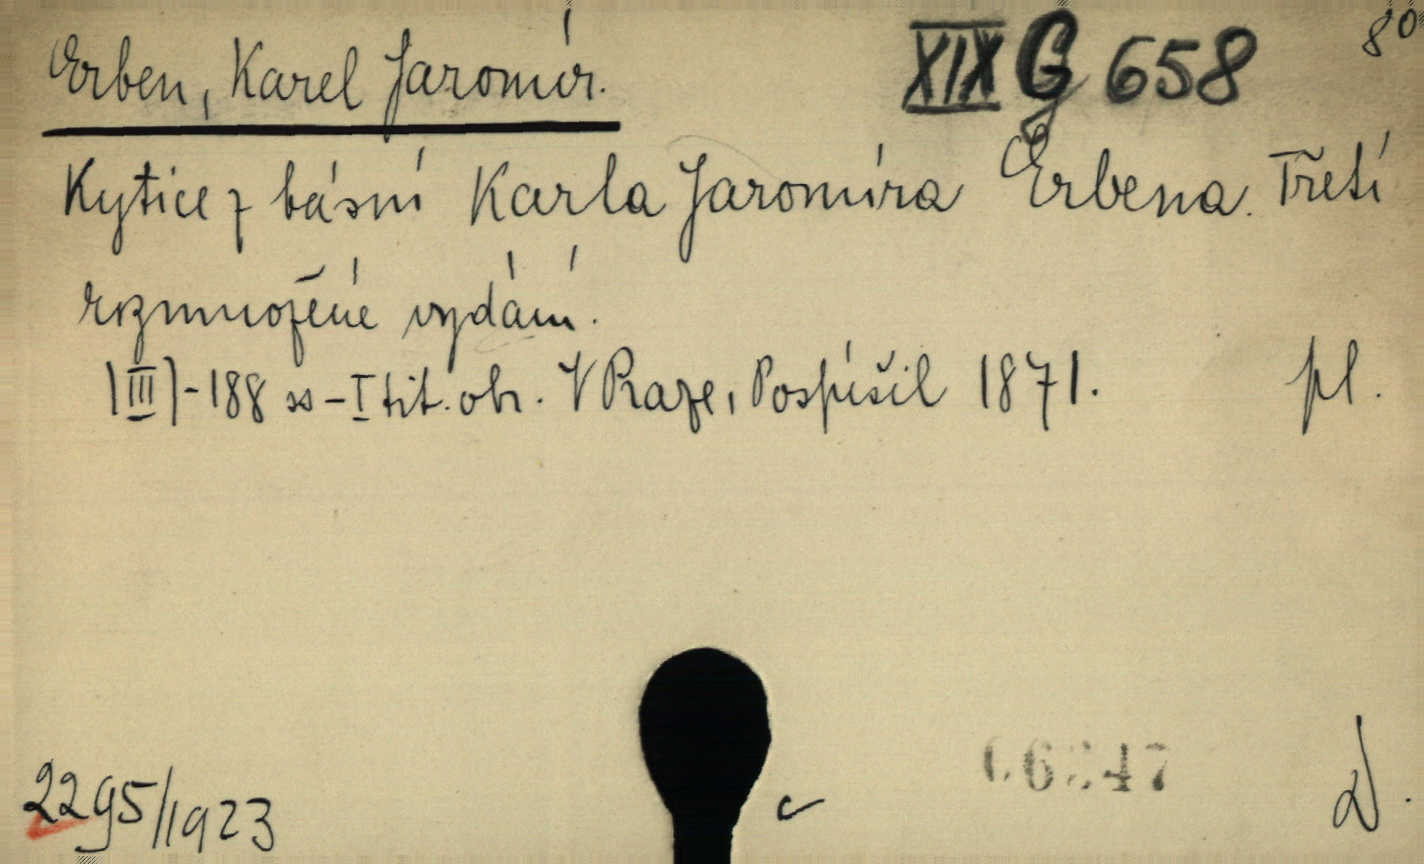 Erben, Karel Jaromír. XIX G 658 8°
Kytice z básní Karla Jaromíra Erbena. Třetí
rozmnožené vydání.
|III|-188 ss - I tit. obr. V Praze, Pospíšil 1871. pl.
2295/1923